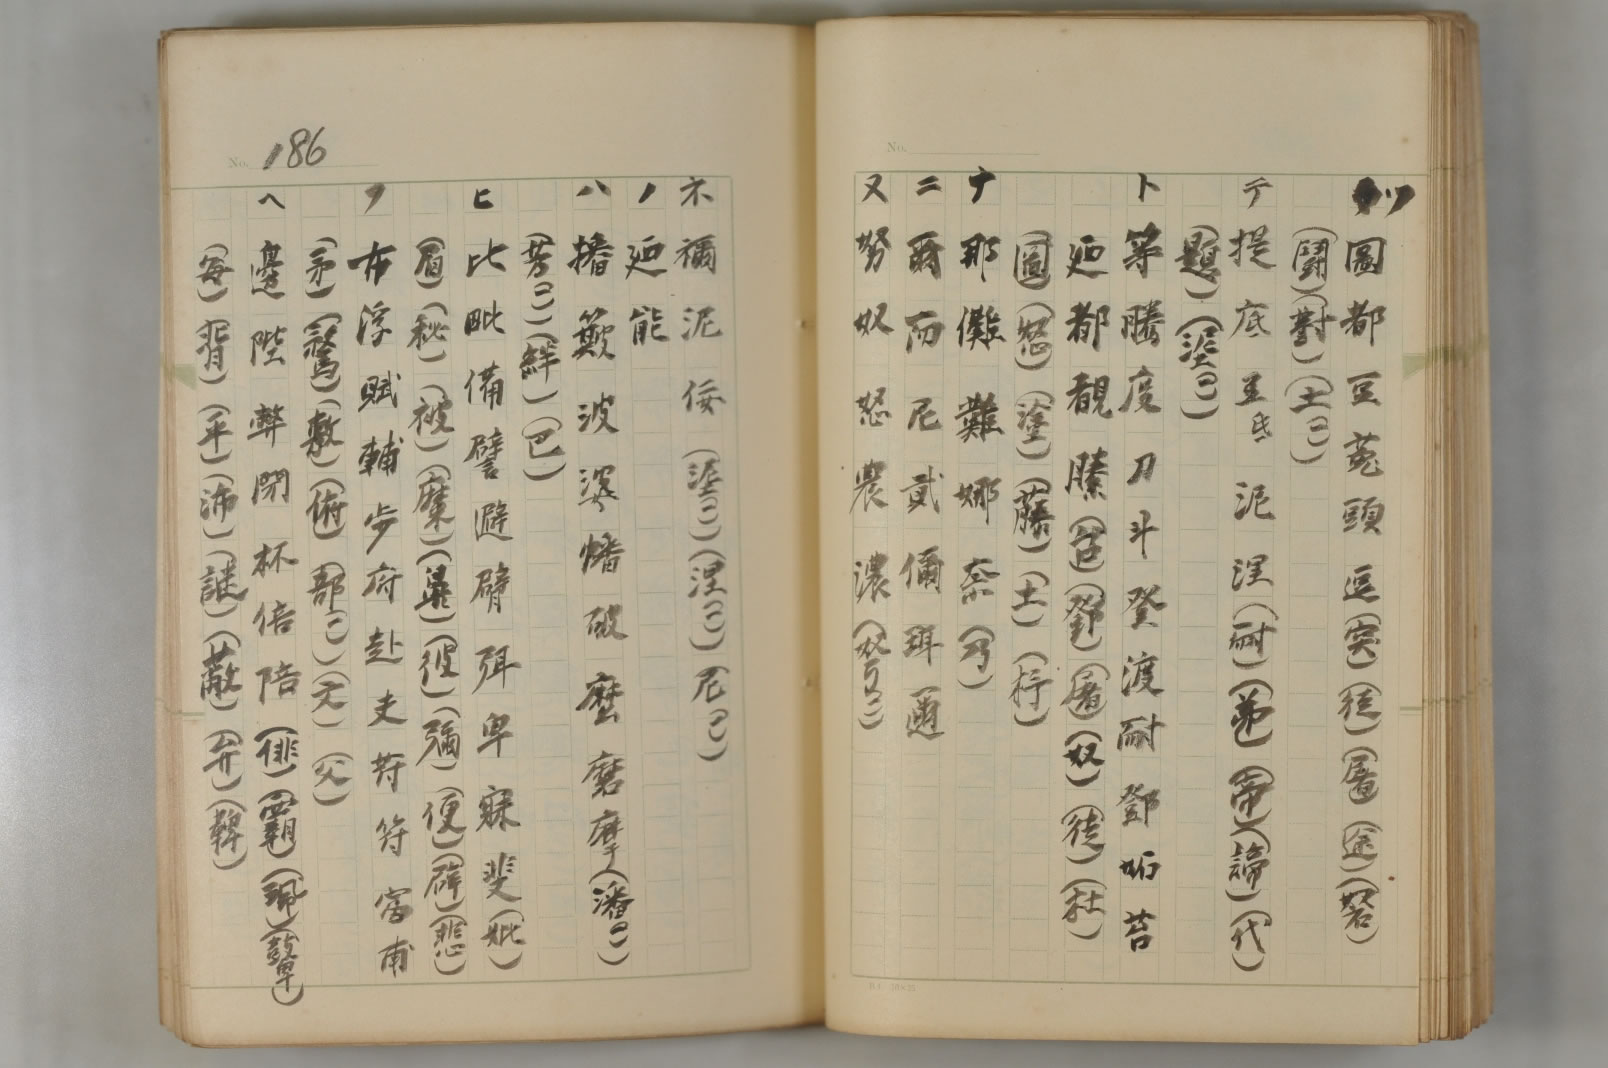 No.
ツ 圖 都 豆 菟 頭 逗 (突) (徒) (屠) (途) (砮)
(鬪) (對) (土(ニ))
テ 提 底 至 氐 泥 涅 (耐) (弟) (帝) (諦) (代)
(題) (涇(ニ))
ト 等 騰 度 刀 斗 登 渡 耐 鄧 妬 苔
廼 都 覩 縢 (苔) (鄧) (屠) (奴) (徒) (杜)
(圖) (怒) (塗) (藤) (土) (杼)
ナ 那 儺 難 娜 奈 (乃)
ニ 爾 而 尼 貳 儞 珥 邇
ヌ 努 奴 怒 農 濃
B4 20×25
No. 186
ネ 禰 泥 佞 (涅(ニ)) (尼(ニ))
ノ 廼 能
ハ 播 簸 波 婆 幡 破 麼 磨 摩 (潘(ニ))
(芳(ニ)) (絆) (巴)
ヒ 比 毗 備 譬 避 臂 弭 卑 寐 斐 (妣)
(眉) (秘) (被) (糜) (彼) (彌) (便) (辟) (悲)
フ 布 浮 賦 輔 步 府 赴 夫 苻 符 富 甫
(矛) (鶩) (敷) (俯) (部(ニ)) (文) (父)
ヘ 邊 陛 弊 閉 杯 倍 陪 (俳) (霸) (珮) (鼙)
(每) (背) (平) (沛) (謎) (蔽) (弁) (鞞)